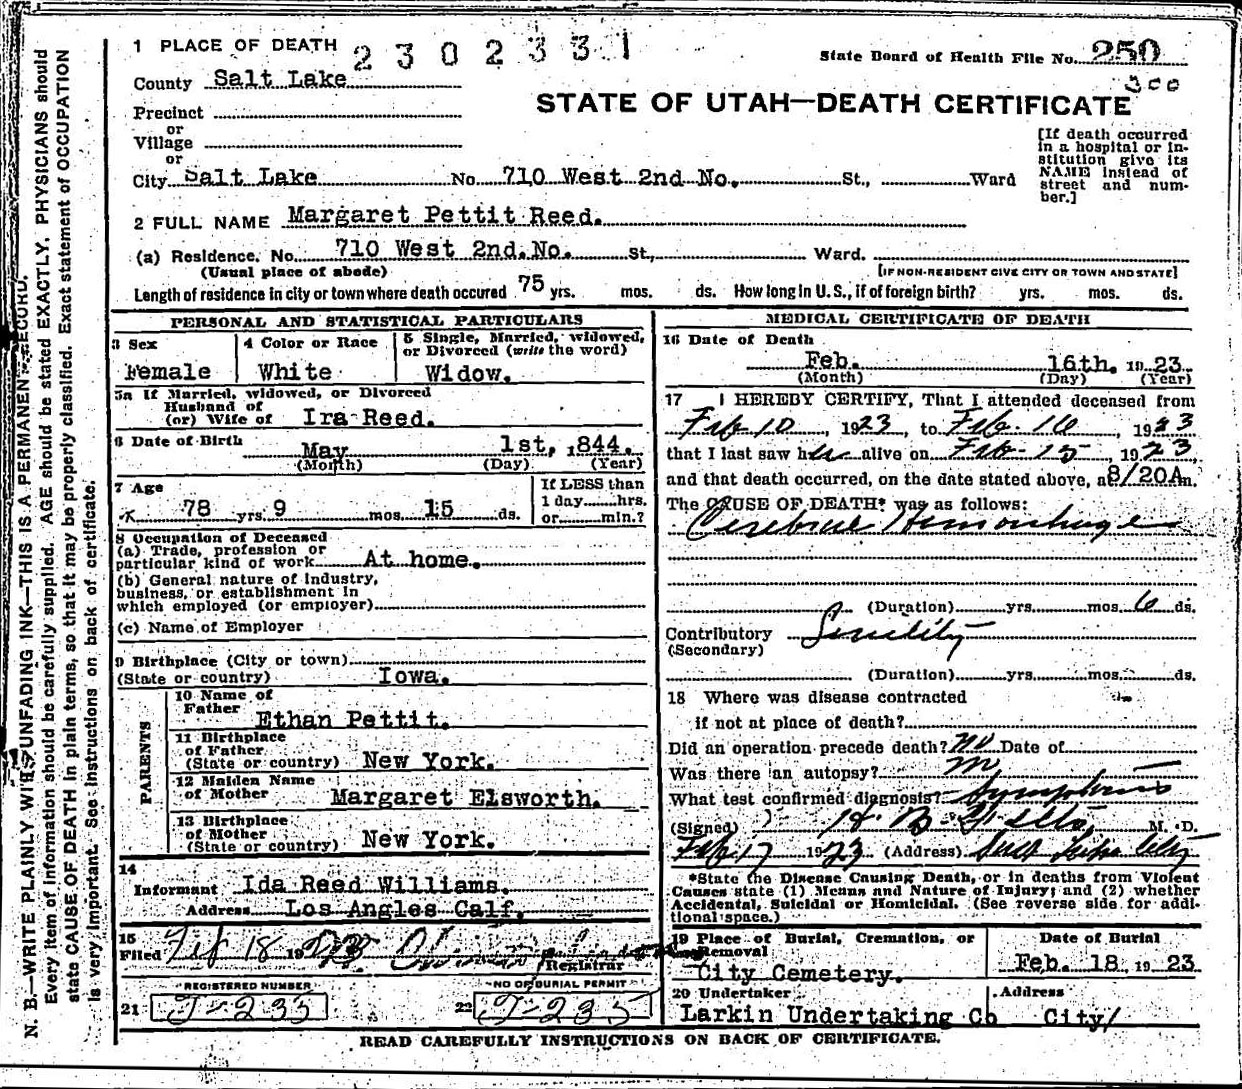 1 PLACE OF DEATH 2 3 0 2 3 3 1
State Board of Health File No. 250
300
County Salt Lake
STATE OF UTAH—DEATH CERTIFICATE
Precinct
or
Village
or
City Salt Lake No 710 West 2nd No. St., Ward
[If death occurred
in a hospital or in-
stitution give its
NAME instead of
street and num-
ber.]
2 FULL NAME Margaret Pettit Reed.
(a) Residence. No. 710 West 2nd. No. St., Ward.
(Usual place of abode) [IF NON-RESIDENT GIVE CITY OR TOWN AND STATE]
Length of residence in city or town where death occured 75 yrs. mos. ds. How long in U. S., if of foreign birth? yrs. mos. ds.
PERSONAL AND STATISTICAL PARTICULARS
3 Sex
Female
4 Color or Race
White
5 Single, Married, widowed,
or Divorced (write the word)
Widow.
5a If Married, widowed, or Divorced
Husband of
(or) Wife of Ira Reed.
6 Date of Birth
May 1st, 1844.
(Month) (Day) (Year)
7 Age
78 yrs. 9 mos. 15 ds.
If LESS than
1 day hrs.
or min.?
8 Occupation of Deceased
(a) Trade, profession or
particular kind of work At home.
(b) General nature of Industry,
business, or establishment in
which employed (or employer)
(c) Name of Employer
9 Birthplace (City or town)
(State or country) Iowa.
PARENTS
10 Name of
Father Ethan Pettit.
11 Birthplace
of Father
(State or country) New York.
12 Maiden Name
of Mother Margaret Elsworth.
13 Birthplace
of Mother
(State or country) New York.
14
Informant Ida Reed Williams.
Address Los Angles Calf.
15
Filed Feb 18 19
Registrar
REGISTERED NUMBER
21 J-235
NO OF BURIAL PERMIT
22 J-235
MEDICAL CERTIFICATE OF DEATH
16 Date of Death
Feb. 16th. 19 23
(Month) (Day) (Year)
17 I HEREBY CERTIFY, That I attended deceased from
Feb 10, 1923, to Feb. 16, 1923
that I last saw her alive on Feb-15-, 1923,
and that death occurred, on the date stated above, at 8/20A m.
The CAUSE OF DEATH* was as follows:
Cerebral Hemorrhage
(Duration) yrs. mos. 6 ds.
Contributory Senility
(Secondary)
(Duration) yrs. mos. ds.
18 Where was disease contracted
if not at place of death?
Did an operation precede death? no Date of
Was there an autopsy?
What test confirmed diagnosis? Symptoms
(Signed) M. D.
Feb. 17 1923 (Address) Salt Lake City
*State the Disease Causing Death, or in deaths from Violent
Causes state (1) Means and Nature of Injury; and (2) whether
Accidental, Suicidal or Homicidal. (See reverse side for addi-
tional space.)
19 Place of Burial, Cremation, or
Removal
City Cemetery.
Date of Burial
Feb. 18 19 23
20 Undertaker
Larkin Undertaking Co
Address
City/
READ CAREFULLY INSTRUCTIONS ON BACK OF CERTIFICATE.
N. B.—WRITE PLAINLY WITH UNFADING INK—THIS IS A PERMANENT RECORD.
Every item of information should be carefully supplied. AGE should be stated EXACTLY. PHYSICIANS should
state CAUSE OF DEATH in plain terms, so that it may be properly classified. Exact statement of OCCUPATION
is very important. See instructions on back of certificate.